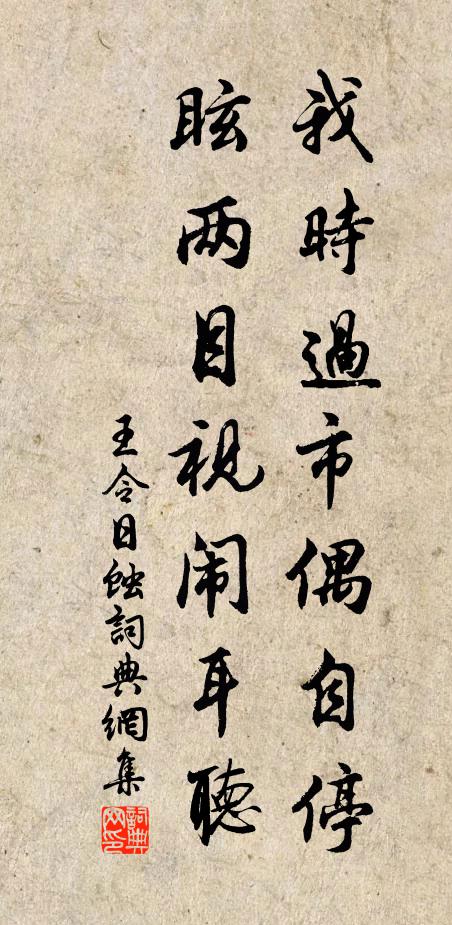 我時過市偶自停
眩两目視闹耳聽
王令日蝕詞典網集
詞典网印